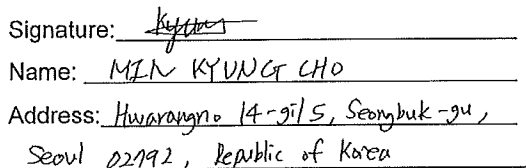 Signature:
Name: MIN KYUNG CHO
Address: Hwarangno 14-gil 5, Seongbuk-gu,
Seoul 02792, Republic of Korea